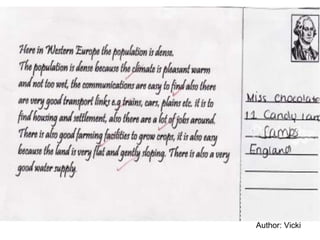 Here in Western Europe the population is dense.
The population is dense because the climate is pleasant warm
and not too wet, the communications are easy to find also there
are very good transport links e.g trains, cars, plains etc. it is to
find housing and settlement, also there are a lot of jobs around.
There is also good farming facilities to grow crops, it is also easy
because the land is very flat and gently sloping. There is also a very
good water supply.
Miss Chocolate
11 Candy land
Jamps
England
Author: Vicki